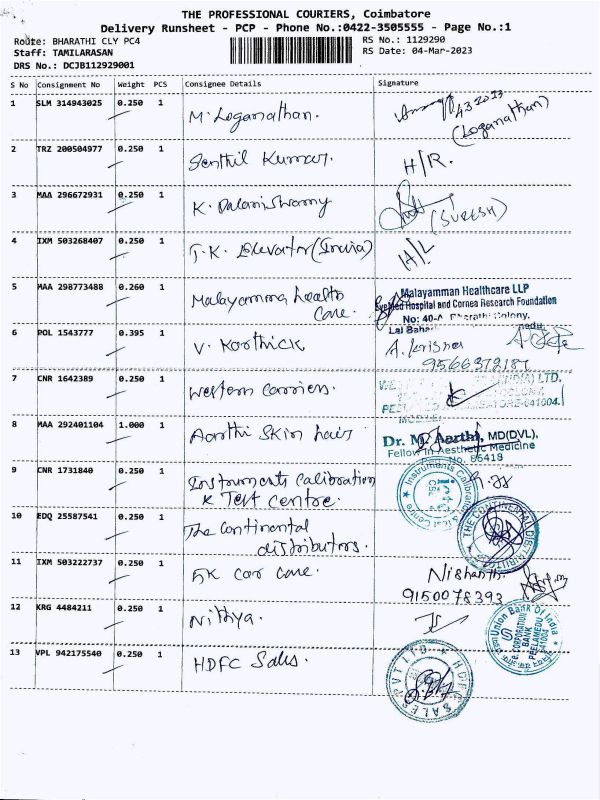 THE PROFESSIONAL COURIERS, Coimbatore
Delivery Runsheet - PCP - Phone No.:0422-3505555 - Page No.:1
Route: BHARATHI CLY PC4
RS No.: 1129290
Staff: TAMILARASAN
RS Date: 04-Mar-2023
DRS No.: DCJB112929001
S No Consignment No Weight PCS Consignee Details Signature
1 SLM 314943025 0.250 1 M. Loganathan.
(Loganathan)
2 TRZ 200504977 0.250 1 Senthil Kumar. H/R.
3 MAA 296672931 0.250 1 K. Palaniswamy (SURESH)
4 IXM 503268407 0.250 1 T.K. Elevator (India) H/L
5 MAA 298773488 0.260 1 Malayamma health
care.
Malayamman Healthcare LLP
Hospital and Cornea Research Foundation
No: 40-A Bharathi Colony,
6 POL 1543777 0.395 1 V. Karthick A. Krishna
9566372187
7 CNR 1642389 0.250 1 Western carriers.
(INDIA) LTD.
8 MAA 292401104 1.000 1 Aarthi Skin hair
Dr. M. Aarthi, MD(DVL),
Fellow in Aesthetic Medicine
No. 86418
9 CNR 1731840 0.250 1 Instruments calibration
& Test centre.
Instruments Calibration & Test Centre
10 EDQ 25587541 0.250 1 The continental
distributors.
THE CONTINENTAL DISTRIBUTORS
11 IXM 503222737 0.250 1 5K car care. Nishanth.
9150078393
12 KRG 4484211 0.250 1 Nithya.
Union Bank Of India
e. CORPORATION
BANK
PEELAMEDU
641004
13 VPL 942175540 0.250 1 HDFC Sales.
HDFC SALES PVT LTD